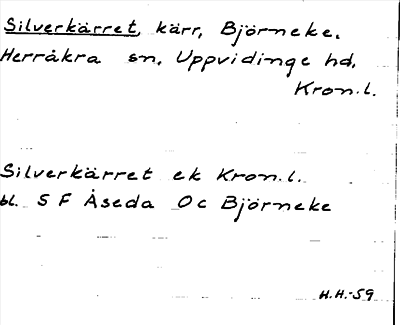 Silverkärret, kärr, Björneke.
Herråkra sn, Uppvidinge hd,
Kron.l.
Silverkärret ek Kron.l.
bl. S F Åseda Oc Björneke
H.H.-59